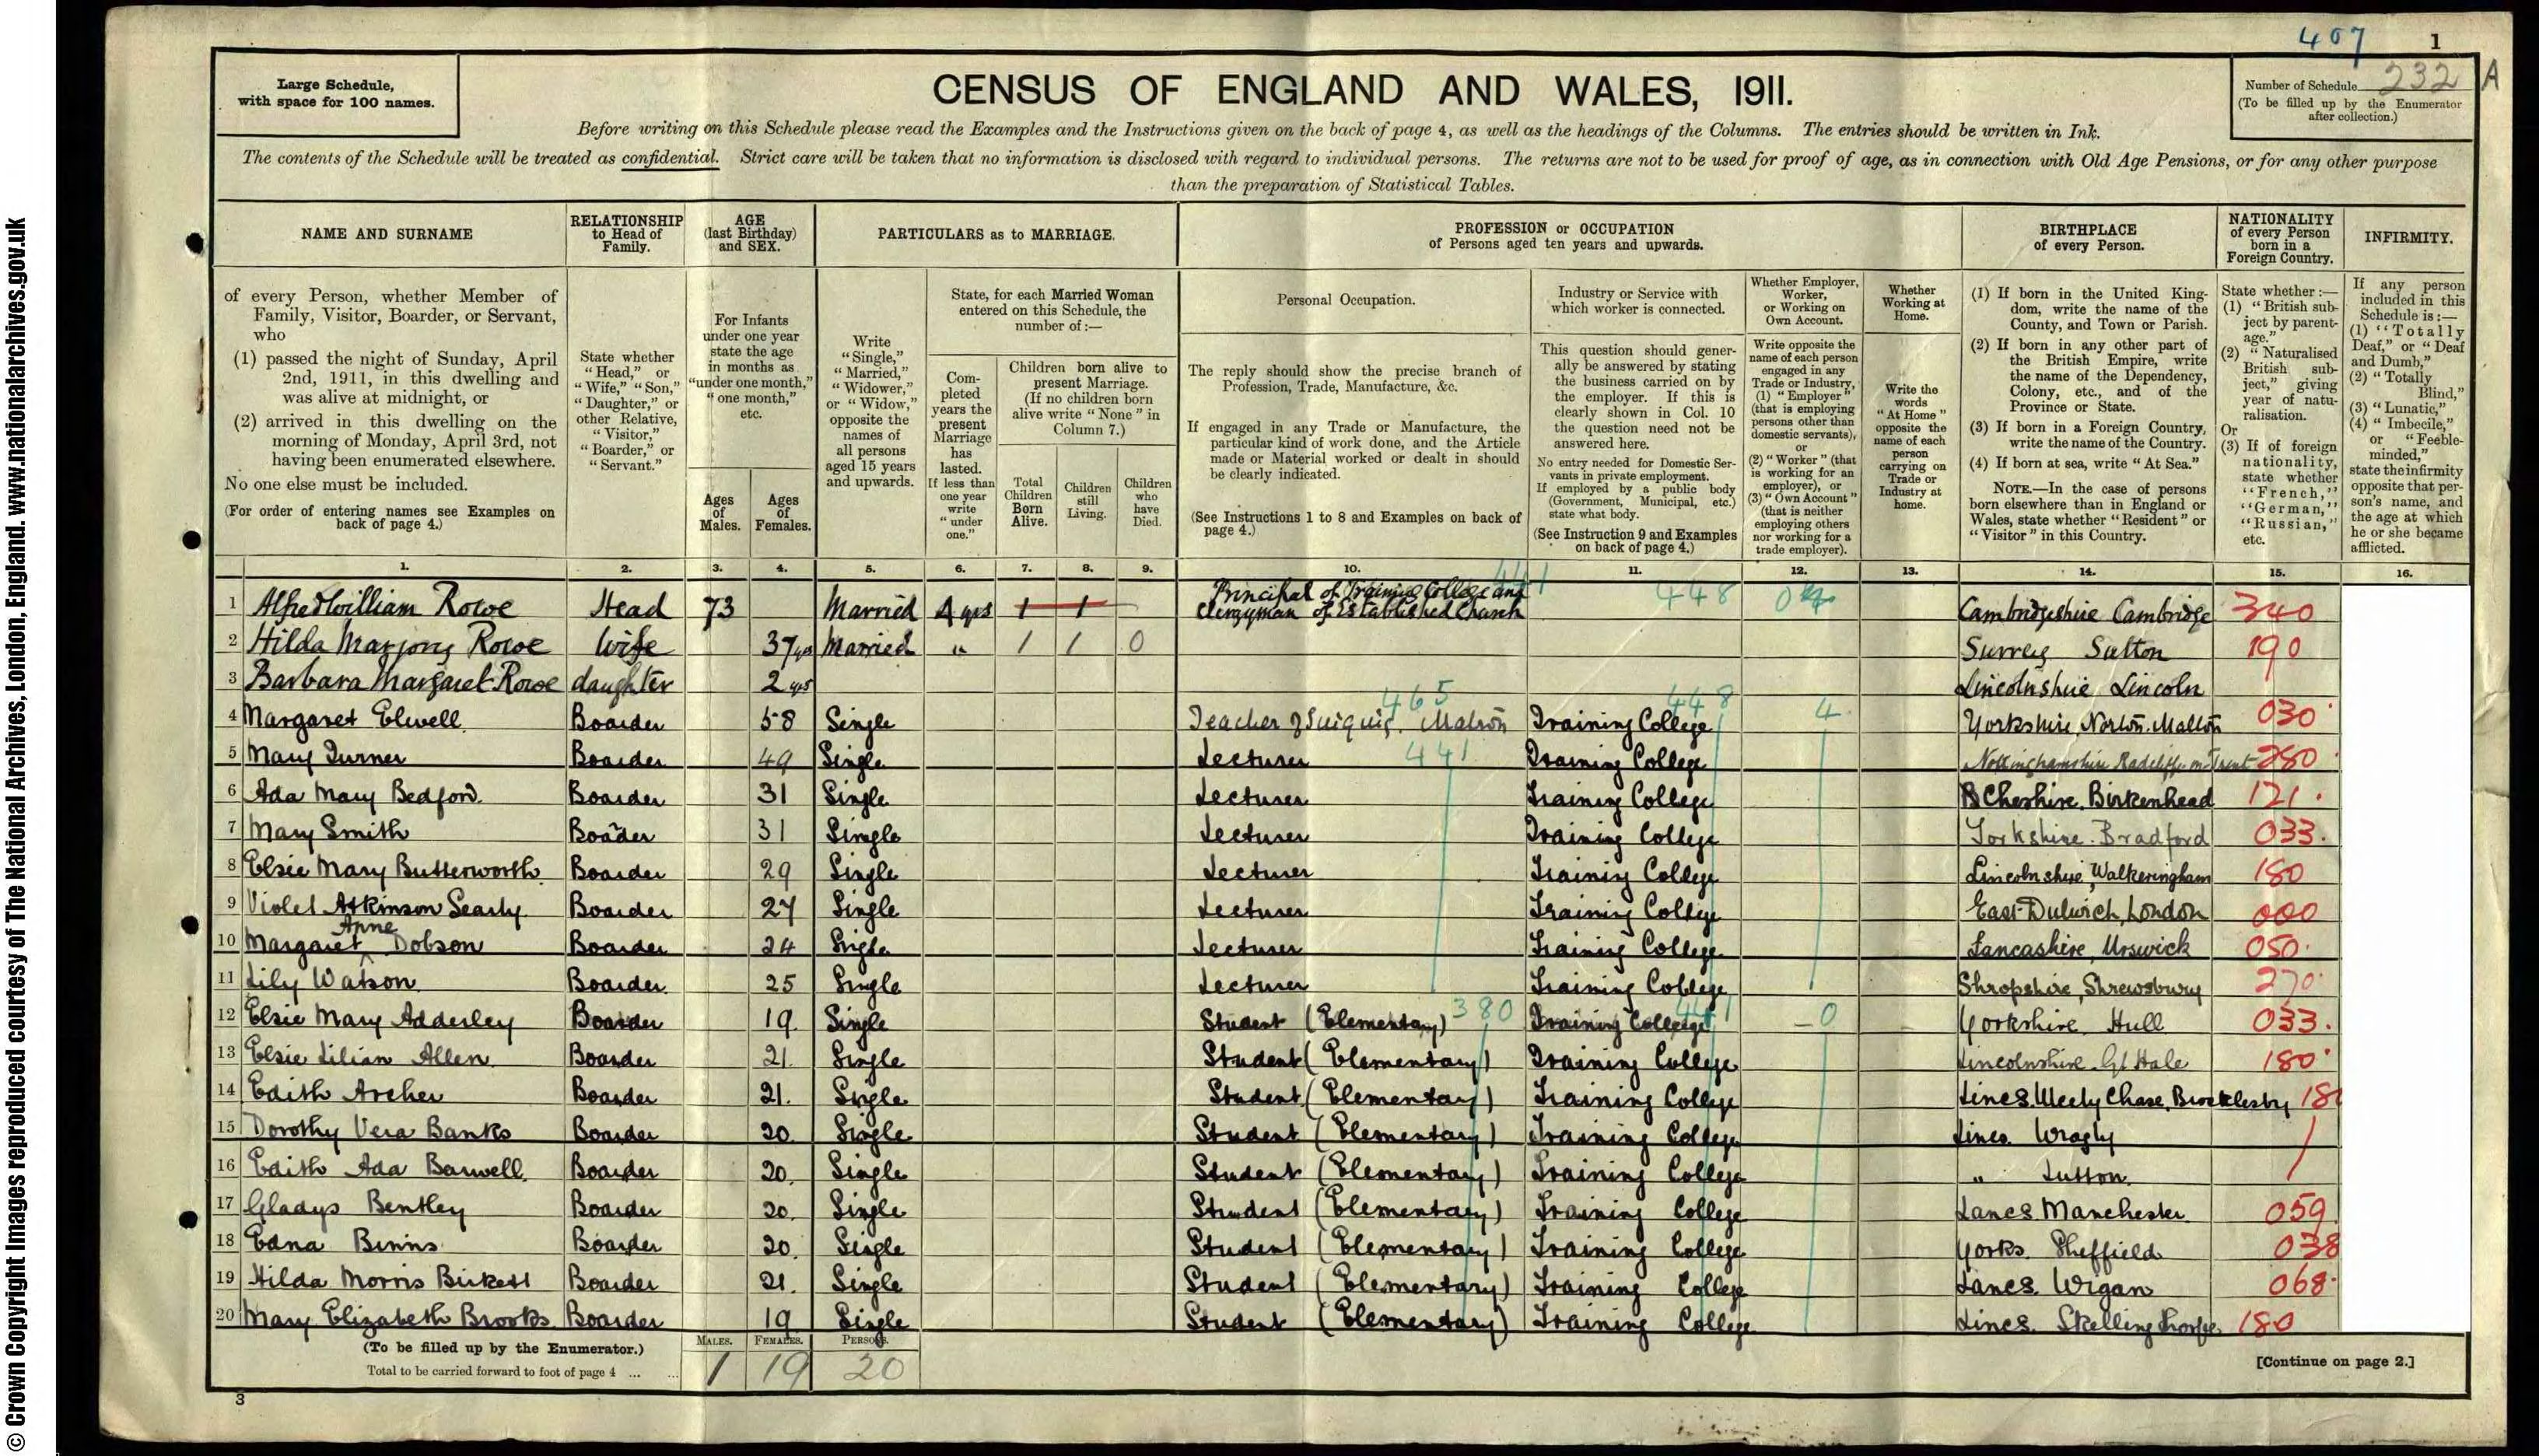 407 1
Large Schedule,
with space for 100 names.
CENSUS OF ENGLAND AND WALES, 1911.
Number of Schedule 232 A
(To be filled up by the Enumerator
after collection.)
Before writing on this Schedule please read the Examples and the Instructions given on the back of page 4, as well as the headings of the Columns. The entries should be written in Ink.
The contents of the Schedule will be treated as confidential. Strict care will be taken that no information is disclosed with regard to individual persons. The returns are not to be used for proof of age, as in connection with Old Age Pensions, or for any other purpose
than the preparation of Statistical Tables.
NAME AND SURNAME
of every Person, whether Member of
Family, Visitor, Boarder, or Servant,
who
(1) passed the night of Sunday, April
2nd, 1911, in this dwelling and
was alive at midnight, or
(2) arrived in this dwelling on the
morning of Monday, April 3rd, not
having been enumerated elsewhere.
No one else must be included.
(For order of entering names see Examples on
back of page 4.)
RELATIONSHIP
to Head of
Family.
State whether
"Head," or
"Wife," "Son,"
"Daughter," or
other Relative,
"Visitor,"
"Boarder," or
"Servant."
AGE
(last Birthday)
and SEX.
For Infants
under one year
state the age
in months as
"under one month,"
"one month,"
etc.
Ages
of
Males.
Ages
of
Females.
PARTICULARS as to MARRIAGE.
Write
"Single,"
"Married,"
"Widower,"
or "Widow,"
opposite the
names of
all persons
aged 15 years
and upwards.
State, for each Married Woman
entered on this Schedule, the
number of:—
Com-
pleted
years the
present
Marriage
has
lasted.
If less than
one year
write
"under
one."
Children born alive to
present Marriage.
(If no children born
alive write "None" in
Column 7.)
Total
Children
Born
Alive.
Children
still
Living.
Children
who
have
Died.
PROFESSION or OCCUPATION
of Persons aged ten years and upwards.
Personal Occupation.
The reply should show the precise branch of
Profession, Trade, Manufacture, &c.
If engaged in any Trade or Manufacture, the
particular kind of work done, and the Article
made or Material worked or dealt in should
be clearly indicated.
(See Instructions 1 to 8 and Examples on back of
page 4.)
Industry or Service with
which worker is connected.
This question should gener-
ally be answered by stating
the business carried on by
the employer. If this is
clearly shown in Col. 10
the question need not be
answered here.
No entry needed for Domestic Ser-
vants in private employment.
If employed by a public body
(Government, Municipal, etc.)
state what body.
(See Instruction 9 and Examples
on back of page 4.)
Whether Employer,
Worker,
or Working on
Own Account.
Write opposite the
name of each person
engaged in any
Trade or Industry,
(1) "Employer"
(that is employing
persons other than
domestic servants),
or
(2) "Worker" (that
is working for an
employer), or
(3) "Own Account"
(that is neither
employing others
nor working for a
trade employer).
Whether
Working at
Home.
Write the
words
"At Home"
opposite the
name of each
person
carrying on
Trade or
Industry at
home.
BIRTHPLACE
of every Person.
(1) If born in the United King-
dom, write the name of the
County, and Town or Parish.
(2) If born in any other part of
the British Empire, write
the name of the Dependency,
Colony, etc., and of the
Province or State.
(3) If born in a Foreign Country,
write the name of the Country.
(4) If born at sea, write "At Sea."
NOTE.—In the case of persons
born elsewhere than in England or
Wales, state whether "Resident" or
"Visitor" in this Country.
NATIONALITY
of every Person
born in a
Foreign Country.
State whether :—
(1) "British sub-
ject by parent-
age."
(2) "Naturalised
British sub-
ject," giving
year of natu-
ralisation.
Or
(3) If of foreign
nationality,
state whether
"French,"
"German,"
"Russian,"
etc.
INFIRMITY.
If any person
included in this
Schedule is :—
(1) "Totally
Deaf," or "Deaf
and Dumb,"
(2) "Totally
Blind,"
(3) "Lunatic,"
(4) "Imbecile,"
or "Feeble-
minded,"
state the infirmity
opposite that per-
son's name, and
the age at which
he or she became
afflicted.
1. 2. 3. 4. 5. 6. 7. 8. 9. 10. 11. 12. 13. 14. 15. 16.
Principal of Training College and
1 Alfred William Rowe Head 73 Married 4 yrs 1 1 Clergyman of Established Church 448 Cambridgeshire Cambridge 340
2 Hilda Marjory Rowe Wife 37 yrs Married " 1 1 0 Surrey Sutton 190
3 Barbara Margaret Rowe daughter 2 yrs Lincolnshire Lincoln
465 448
4 Margaret Elwell Boarder 58 Single Teacher of Matron Training College 4 Yorkshire, Norton. Malton 030
5 Mary Turner Boarder 49 Single Lecturer 441 Training College Nottinghamshire Radcliffe-on-Trent 280
6 Ada Mary Bedford Boarder 31 Single Lecturer Training College Cheshire. Birkenhead 121
7 Mary Smith Boader 31 Single Lecturer Training College Yorkshire. Bradford 033
8 Elsie Mary Butterworth Boarder 29 Single Lecturer Training College Lincolnshire, Walkeringham 180
9 Violet Atkinson Searly Boarder 27 Single Lecturer Training College East Dulwich, London 000
Anne
10 Margaret Dobson Boarder 24 Single Lecturer Training College Lancashire, Urswick 050
11 Lily Watson Boarder 25 Single Lecturer Training College Shropshire, Shrewsbury 270
12 Elsie Mary Adderley Boarder 19 Single Student (Elementary) 380 Training College 0 Yorkshire Hull 033
13 Elsie Lilian Allen Boarder 21 Single Student (Elementary) Training College Lincolnshire. Gt Hale 180
14 Edith Archer Boarder 21 Single Student (Elementary) Training College Lincs. Chase, Brocklesby
15 Dorothy Vera Banks Boarder 20 Single Student (Elementary) Training College Lincs. Wragby
16 Edith Ada Barwell Boarder 20 Single Student (Elementary) Training College " Sutton
17 Gladys Bentley Boarder 20 Single Student (Elementary) Training College Lancs. Manchester 059
18 Edna Binns Boarder 20 Single Student (Elementary) Training College Yorks. Sheffield 038
19 Hilda Morris Birkett Boarder 21 Single Student (Elementary) Training College Lancs. Wigan 068
20 Mary Elizabeth Brooks Boarder 19 Single Student (Elementary) Training College Lincs. Skellingthorpe 180
(To be filled up by the Enumerator.) MALES. FEMALES. PERSONS.
Total to be carried forward to foot of page 4 ... ... 1 19 20
[Continue on page 2.]
3
© Crown Copyright Images reproduced courtesy of The National Archives, London, England. www.nationalarchives.gov.uk